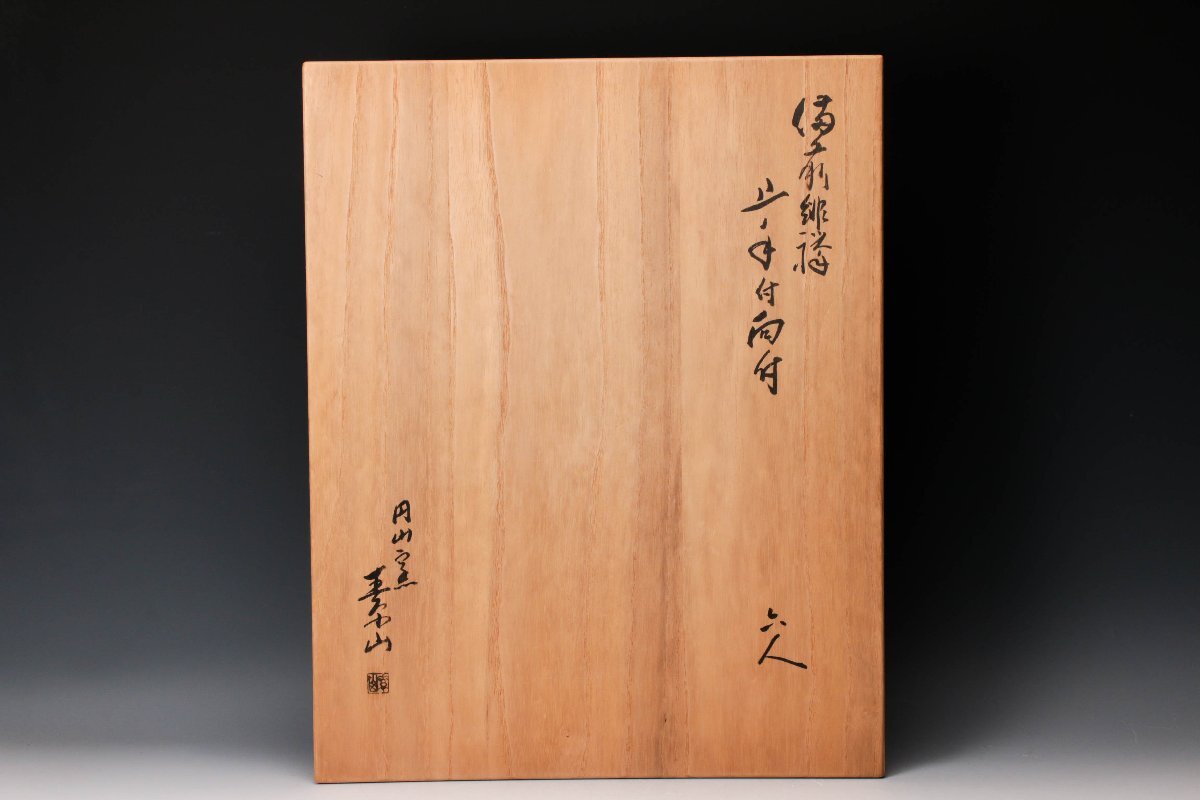 備前緋襷
手付向付
六人
円山窯
寿山